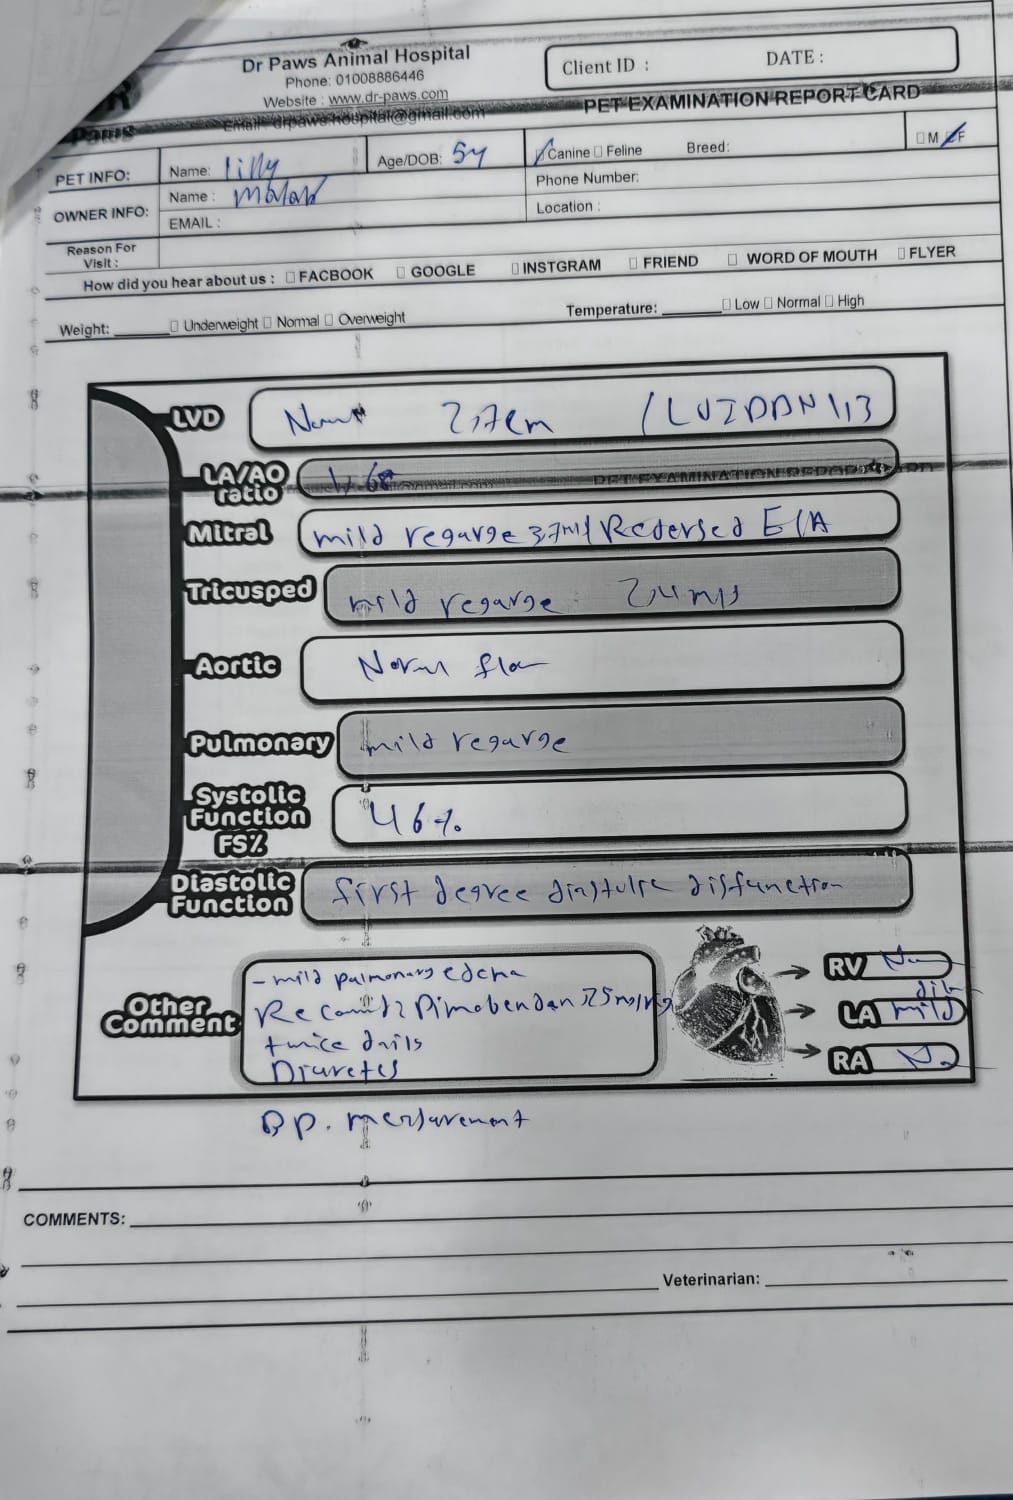 Dr Paws Animal Hospital
Phone: 01008886446
Website : www.dr-paws.com
Email: drpaws.hospital@gmail.com
Client ID : DATE :
PET EXAMINATION REPORT CARD
Paws
PET INFO: Name: lilly Age/DOB: 5y Canine Feline Breed: M F
OWNER INFO: Name : Phone Number:
EMAIL : Location :
Reason For Visit :
How did you hear about us : FACBOOK GOOGLE INSTGRAM FRIEND WORD OF MOUTH FLYER
Weight: Underweight Normal Overweight Temperature: Low Normal High
LVD 2,7cm / LVIDDN 1,13
LA/AO ratio
PET EXAMINATION REPORT CARD
Mitral mild regurge 3,7m/s Reversed E/A
Tricusped mild regurge 2,4 m/s
Aortic Normal flow
Pulmonary mild regurge
Systolic Function FS% 46%
Diastolic Function first degree diastolic disfunction
Other Comment
- mild pulmonary edema
Pimobendan
twice daily
Diuretes
RV
LA mild
RA
BP. mersurement
COMMENTS:
Veterinarian: